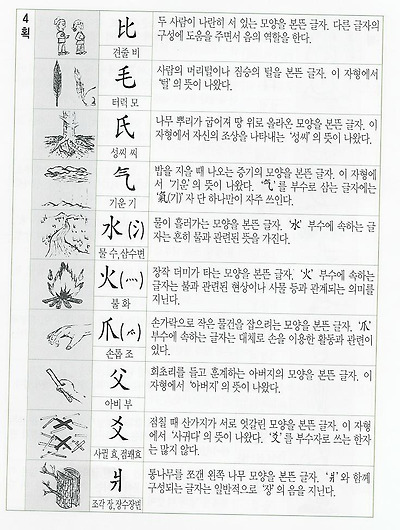 4
획
比
견줄 비
두 사람이 나란히 서 있는 모양을 본뜬 글자. 다른 글자의
구성에 도움을 주면서 음의 역할을 한다.
毛
터럭 모
사람의 머리털이나 짐승의 털을 본뜬 글자. 이 자형에서
'털'의 뜻이 나왔다.
氏
성씨 씨
나무 뿌리가 굽이져 땅 위로 올라온 모양을 본뜬 글자. 이
자형에서 자신의 조상을 나타내는 '성씨'의 뜻이 나왔다.
气
기운 기
밥을 지을 때 나오는 증기의 모양을 본뜬 글자. 이 자형에
서 '기운'의 뜻이 나왔다. '气'를 부수로 삼는 글자에는
'氣(기)'자 단 하나만이 자주 쓰인다.
水(氵)
물 수, 삼수변
물이 흘러가는 모양을 본뜬 글자. '水' 부수에 속하는 글
자는 흔히 물과 관련된 뜻을 가진다.
火(灬)
불 화
장작 더미가 타는 모양을 본뜬 글자. '火' 부수에 속하는
글자는 불과 관련된 현상이나 사물 등과 관계되는 의미를
지닌다.
爪(爫)
손톱 조
손가락으로 작은 물건을 잡으려는 모양을 본뜬 글자. '爪'
부수에 속하는 글자는 대체로 손을 이용한 활동과 관련이
있다.
父
아비 부
회초리를 들고 훈계하는 아버지의 모양을 본뜬 글자. 이
자형에서 '아버지'의 뜻이 나왔다.
爻
사귈 효, 점괘효
점칠 때 산가지가 서로 엇갈린 모양을 본뜬 글자. 이 자형
에서 '사귀다'의 뜻이 나왔다. '爻'를 부수자로 쓰는 한자
는 많지 않다.
爿
조각 장, 장수장변
통나무를 쪼갠 왼쪽 나무 모양을 본뜬 글자. '爿'와 함께
구성되는 글자는 일반적으로 '장'의 음을 지닌다.